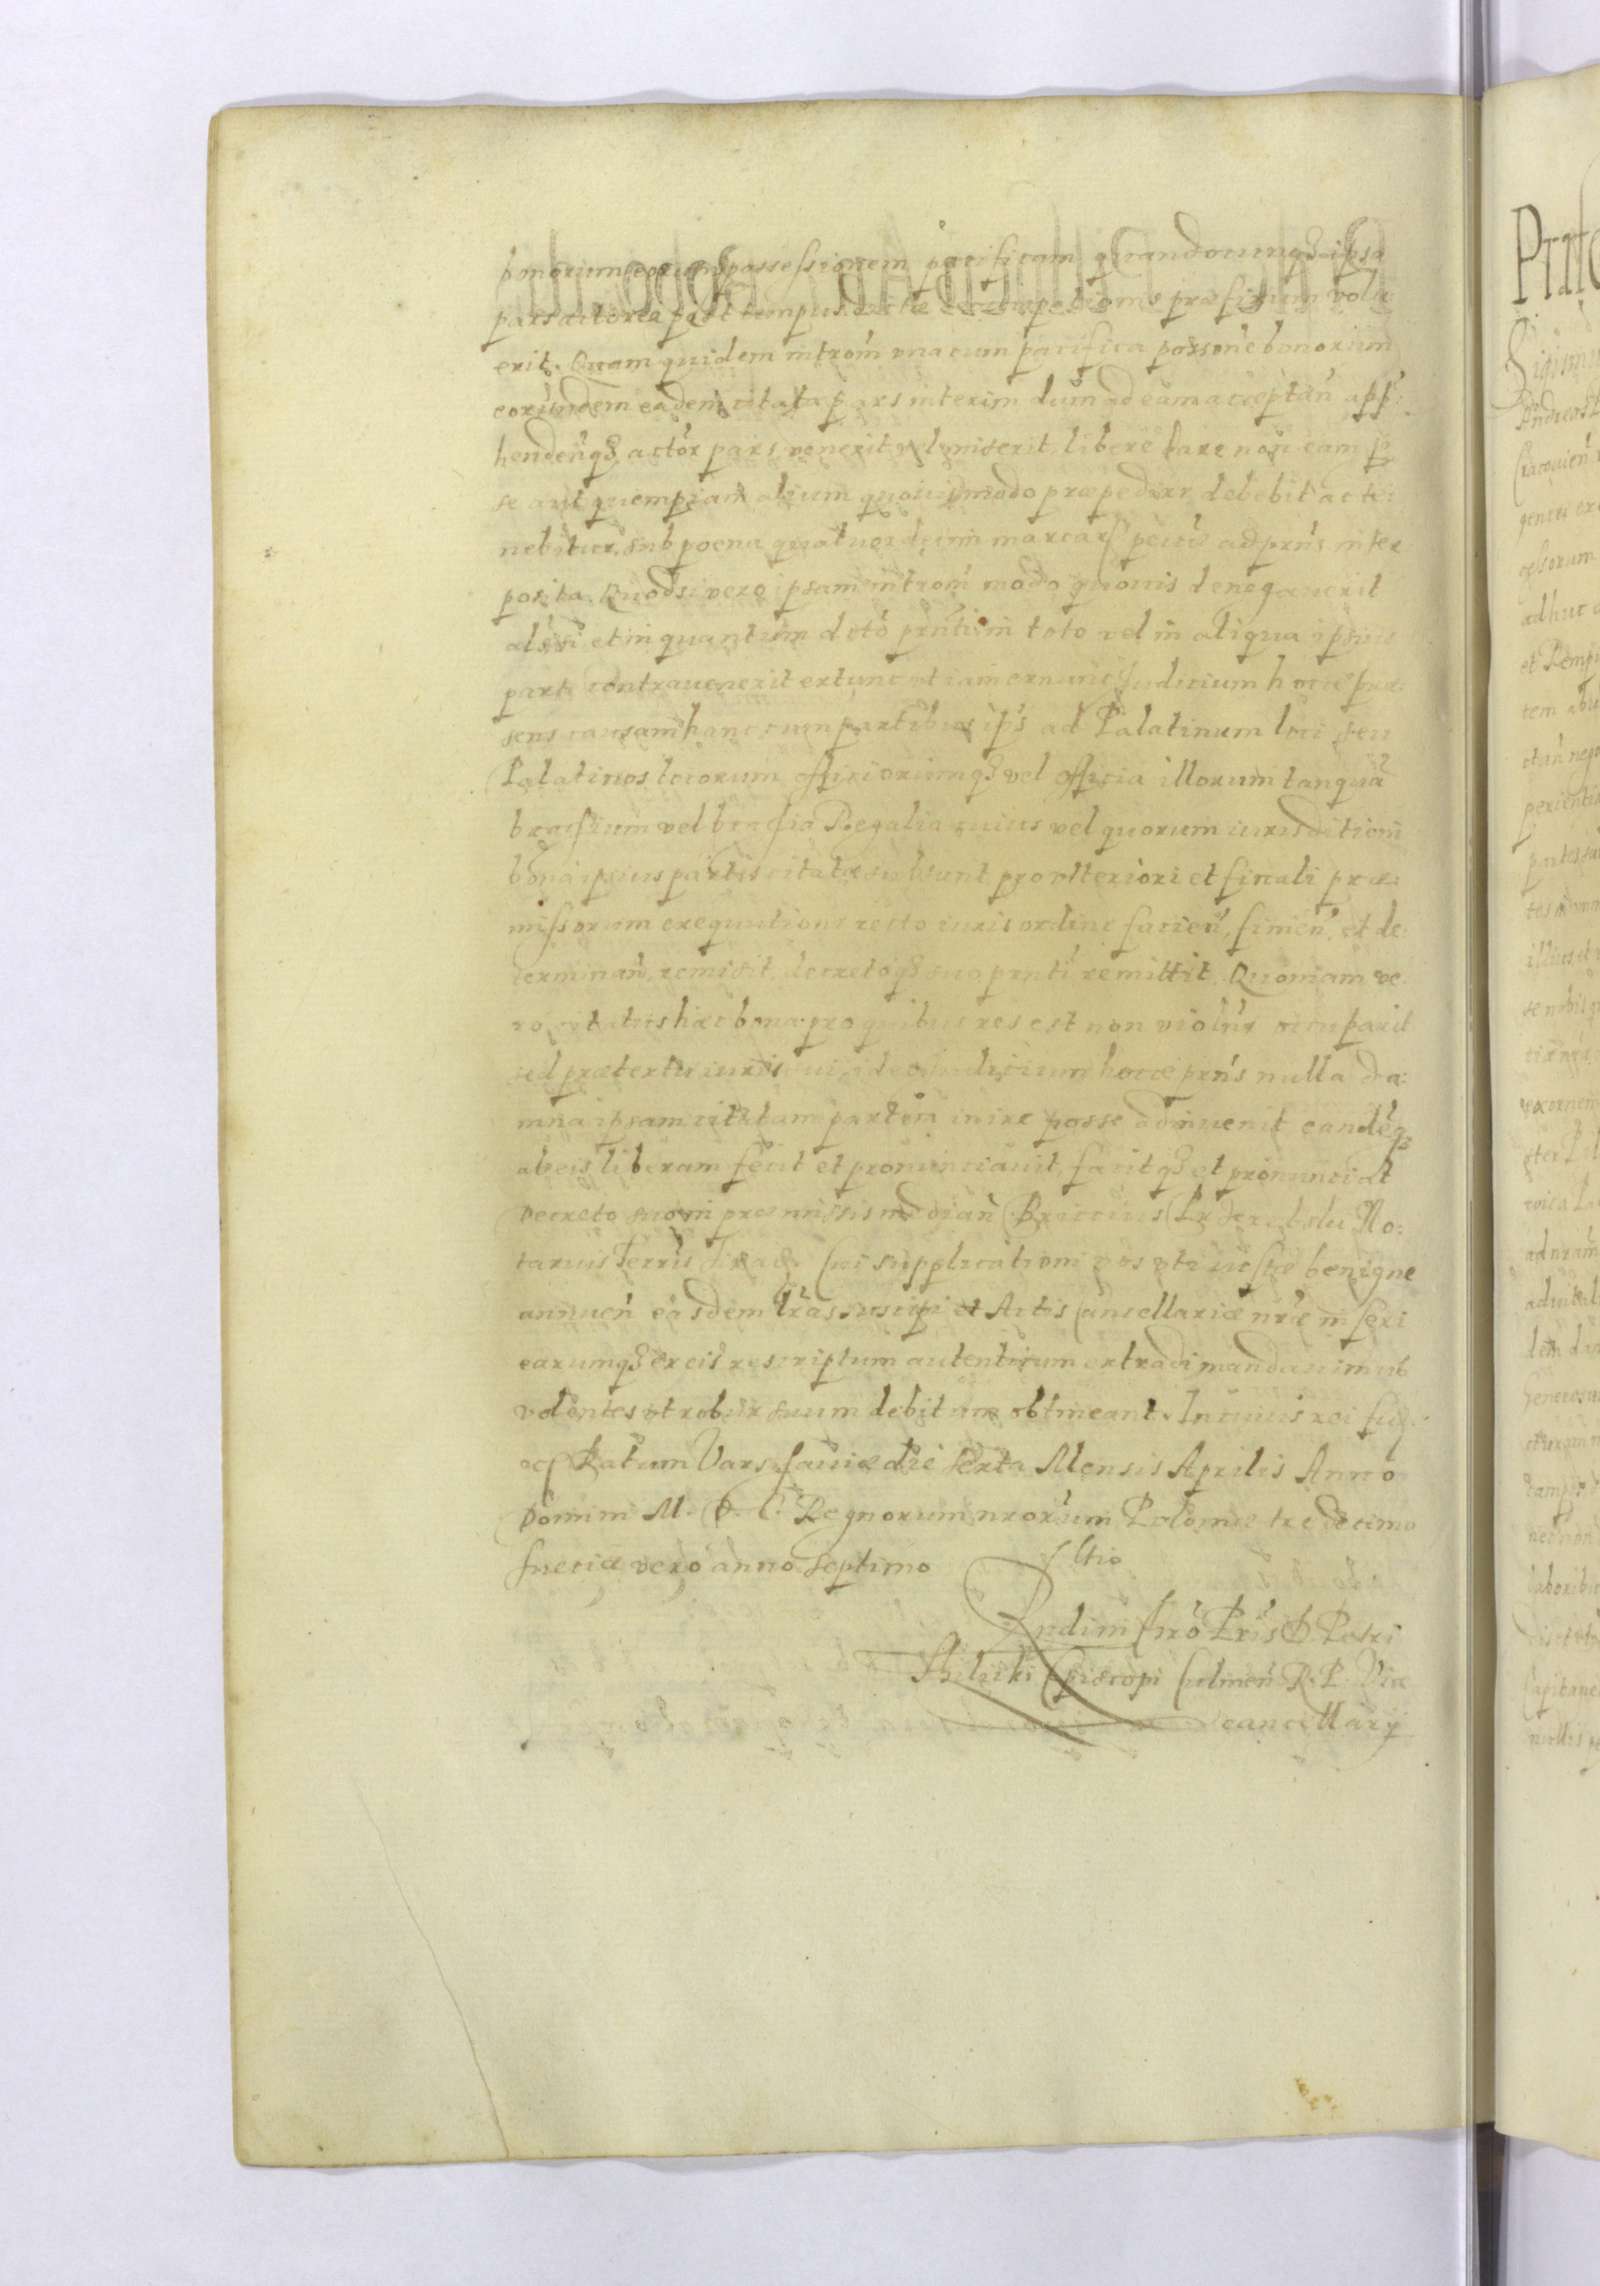 bonorum eorum possessionem pacificam quandocunqȝ ipsa
pars actorea post tempus exemptionis præfixum volu
erit. Quam quidem introm̃ vnacum pacifica possõne bonorum
eorundem eadem citata pars interim dum ad eam acceptañ app:
hendeñqȝ actor pars venerit vel miserit libere dare non eam p
se aut quempiam alium quouismodo præpedire debebit ac te:
nebitur, sub poena quatuordecim marcar peccũ ad prñs inter
posita. Quodsi vero ipsam introm̃ modo quouis denegauerit
als si et in quantum dcto prñti in toto vel in aliqua ipsius
parte contrauenerit extunc vt iam exnunc Judicium hocce præ:
sens causam hanc cum partibus ipš ad Palatinum loci seu
Palatinos locorum officiorumqȝ vel officia illorum tanquã
brachium vel brachia Regalia cuius vel quorum iurisditioni
bona ipsius partis citatæ subsunt pro vlteriori et finali præ:
missorum exequutione recto iuris ordine facieñ, finieñ, et de:
terminañ, remisit, decretoqȝ suo prñti remittit. Quoniam ve
ro citatus hæc bona pro quibus res est non violñr occupauit
sed prætextu iuris sui, ideo Judicium hocce prñs nulla da:
mna ipsam citatam partem inire posse adinuenit eandẽqȝ
ab eis liberam fecit et pronunciauit, facitqȝ et pronunciat
Decreto suo in præmissis mediañ Briccius No:
tarius Terris Cui supplicationi nos vti iustæ benigne
annueñ easdem lras suscipi et Actis Cancellariæ nræ inseri
earumqȝ ex eis rescriptum autenticum extradi mandauimus
volentes vt robur suum debitum obtineant. In cuius rei fid.
Datum Varssauiæ die sexta Mensis Aprilis Anno
Domini M. D. C. Regnorum nrorum Poloniæ tredecimo
Sueciæ vero anno septimo
Rltio
Rndimi in Xrõ Pris D. Petri
Tilicki Episcopi Culmeñ R. P. Vice
cancellarij